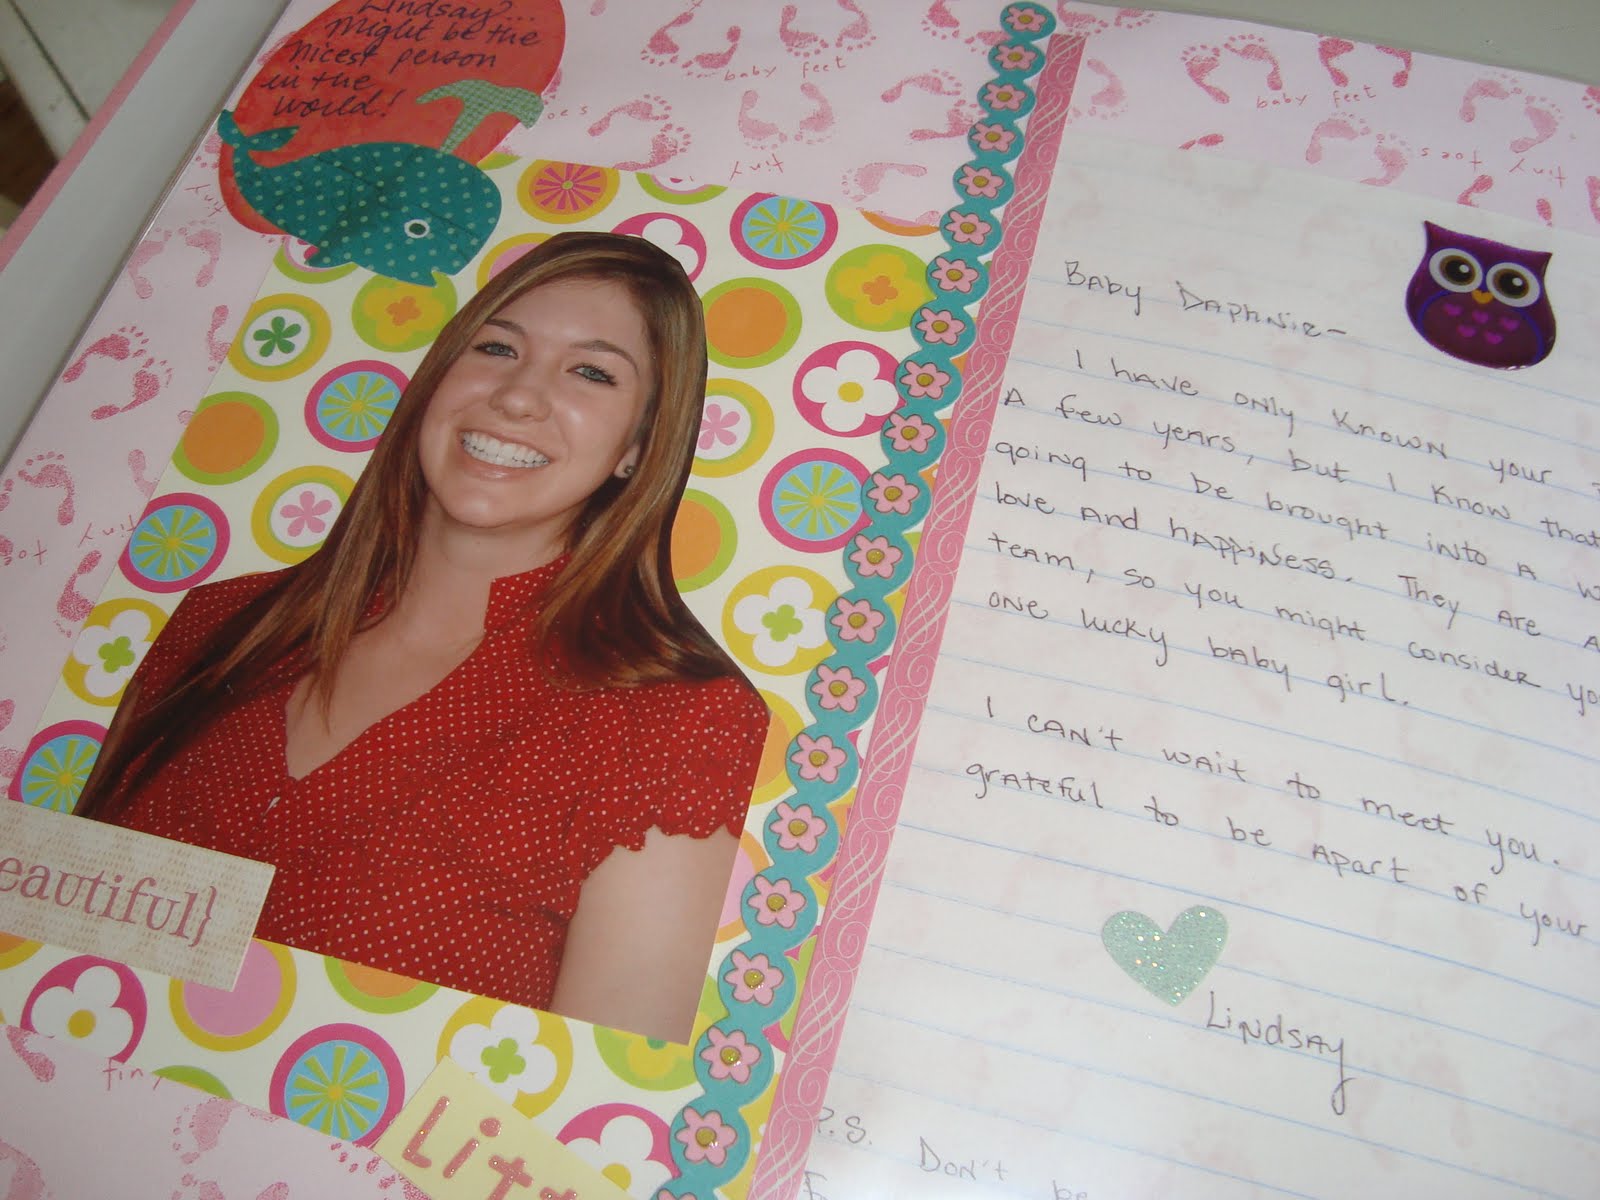 Lindsay?...
Might be the
nicest person
in the
world!
baby feet
baby feet
tiny
toes
tiny
tiny
tiny
eautiful}
Litt
Baby Daphnie-
I have only known your
A few years, but I know that
going to be brought into A
love And hAppiness. They Are
team, so you might consider
one lucky baby girl.
I cAn't wait to meet you.
grAteful to be Apart of your
Lindsay
P.S. Don't be